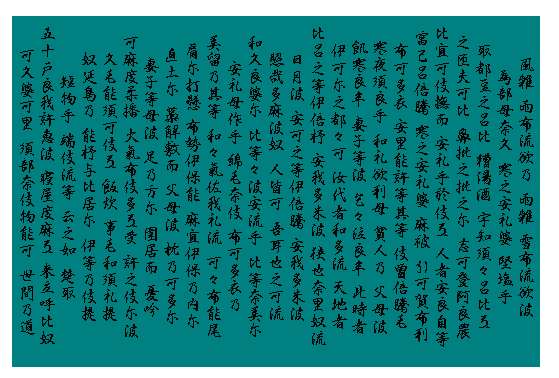 風雜 雨布流欲乃 雨雜 雪布流欲波
為部母奈久 寒之安礼婆 堅塩乎
取都豆之呂比 糟湯酒 宇知須々呂比弖
之匝夫可比 鼻批之批之尓 志可登阿良農
比宜可伎撫而 安礼乎於伎弖 人者安良自等
富己呂倍騰 寒之安礼婆 麻被 引可賀布利
布可多衣 安里能許等其等 伎曽倍騰毛
寒夜須良乎 和礼欲利母 貧人乃 父母波
飢寒良牟 妻子等波 乞々泣良牟 此時者
伊可尓之都々可 汝代者和多流 天地者
比呂之等伊倍杼 安我多米波 狭也奈里奴流
日月波 安可之等伊倍騰 安我多米波
照哉多麻波奴 人皆可 吾耳也之可流
和久良婆尓 比等々波安流乎 比等奈美尓
安礼母作乎 綿毛奈伎 布可多衣乃
美留乃其等 和々氣佐我礼流 可々布能尾
肩尓打懸 布勢伊保能 麻宜伊保乃内尓
直土尓 藁解敷而 父母波 枕乃可多尓
妻子等母波 足乃方尓 圍居而 憂吟
可麻度柔播 火氣布伎多弖受 許之伎尓波
久毛能須可伎弖 飯炊 事毛和須礼提
奴延鳥乃 能杼与比居尓 伊等乃伎提
短物乎 端伎流等 云之如 楚取
五十戸良我許恵波 寝屋度麻弖 来立呼比奴
可久婆可里 須部奈伎物能可 世間乃道